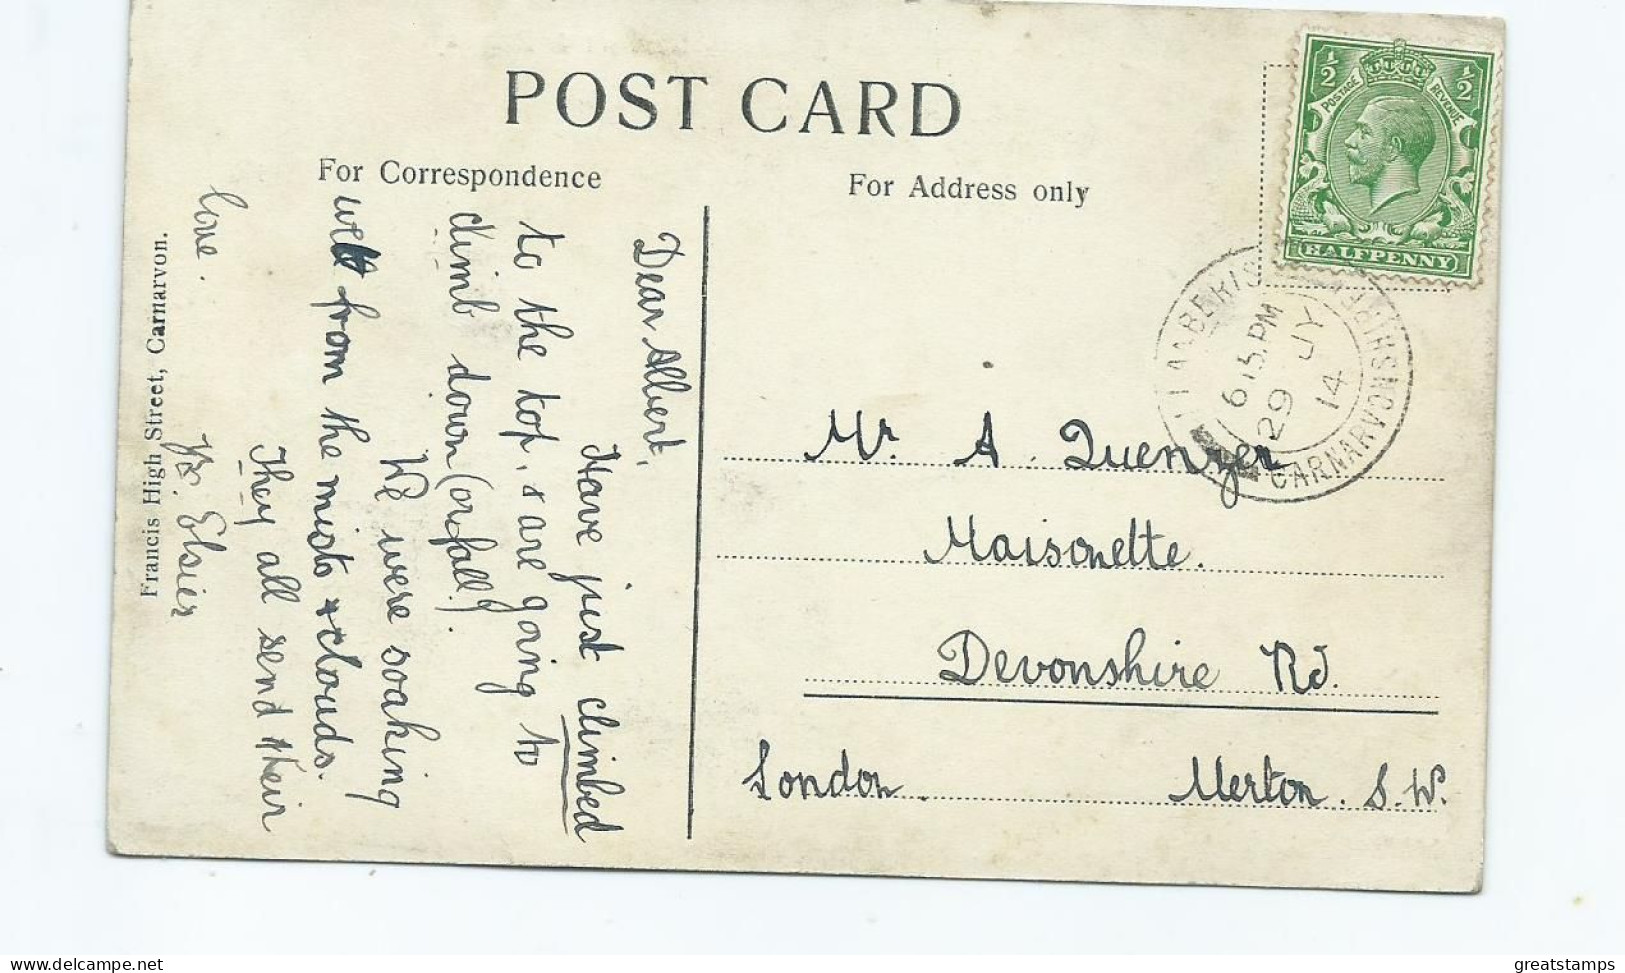 POST CARD
For Correspondence
For Address only
½ ½
POSTAGE REVENUE
HALFPENNY
LLANBERIS
CARNARVONSHIRE
6.15 PM
29 JY
14
Dear Albert,
Have just climbed
to the top, & are going to
climb down (or fall!)
We were soaking
wet from the mists & clouds.
They all send their
love.
Yrs. Elsie
Francis High Street, Carnarvon.
Mr. A. Quenzer
Maisonette.
Devonshire Rd.
London. Merton. S.W.
delcampe.net
greatstamps